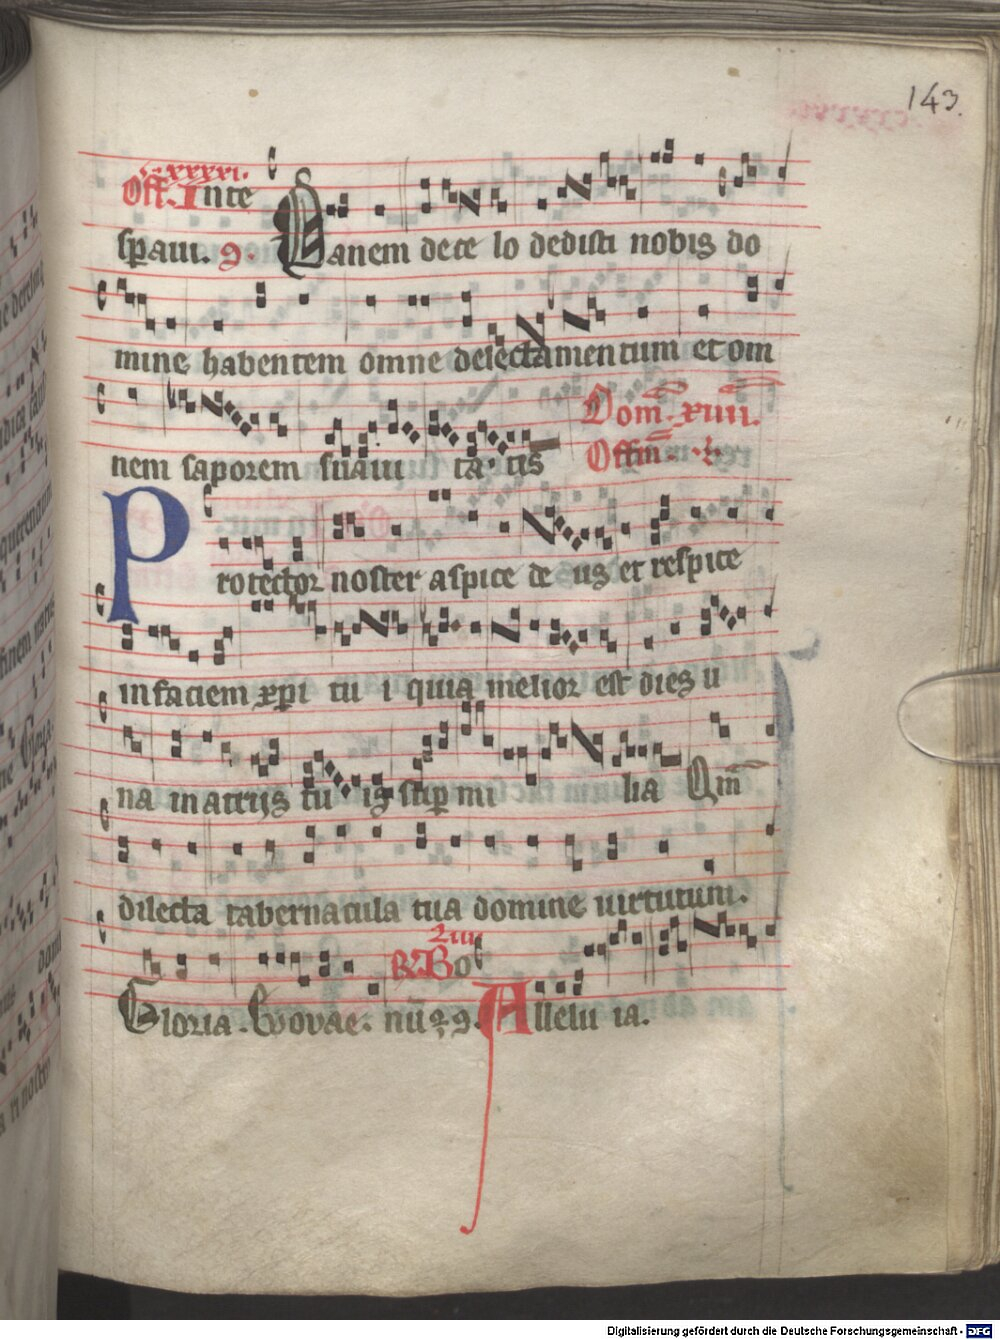 143.
xxxxi.
Off. In te
spaui. 9. Panem de ce lo dedisti nobis do
mine habentem omne delectamentum et om
nem saporem suaui ta tis
Dom. xiiii.
Offm.
Protector noster aspice de us et respice
in faciem xpi tu i quia melior est dies u
na in atrijs tu is sup mi lia Qm
dilecta tabernacula tua domine uirtutum.
Gloria. Evovae. Bo
Allelu ia.
Digitalisierung gefördert durch die Deutsche Forschungsgemeinschaft - DFG